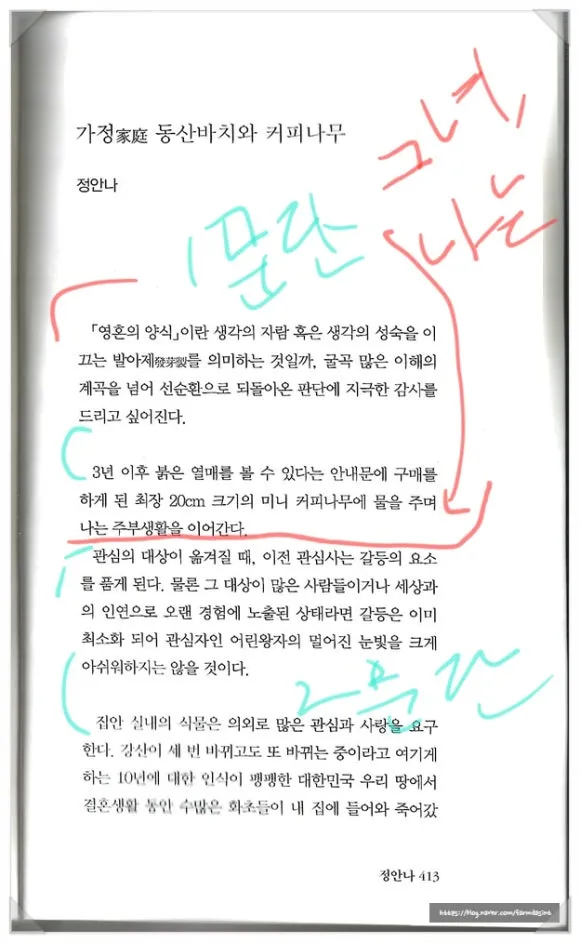 가정家庭 동산바치와 커피나무
정안나
그녀,
나는
1문단
「영혼의 양식」이란 생각의 자람 혹은 생각의 성숙을 이
끄는 발아제發芽製를 의미하는 것일까, 굴곡 많은 이해의
계곡을 넘어 선순환으로 되돌아온 판단에 지극한 감사를
드리고 싶어진다.
3년 이후 붉은 열매를 볼 수 있다는 안내문에 구매를
하게 된 최장 20cm 크기의 미니 커피나무에 물을 주며
나는 주부생활을 이어간다.
관심의 대상이 옮겨질 때, 이전 관심사는 갈등의 요소
를 품게 된다. 물론 그 대상이 많은 사람들이거나 세상과
의 인연으로 오랜 경험에 노출된 상태라면 갈등은 이미
최소화 되어 관심자인 어린왕자의 멀어진 눈빛을 크게
아쉬워하지는 않을 것이다.
2문단
집안 실내의 식물은 의외로 많은 관심과 사랑을 요구
한다. 강산이 세 번 바뀌고도 또 바뀌는 중이라고 여기게
하는 10년에 대한 인식이 팽팽한 대한민국 우리 땅에서
결혼생활 동안 수많은 화초들이 내 집에 들어와 죽어갔
정안나 413
https://blog.naver.com/farmdasint